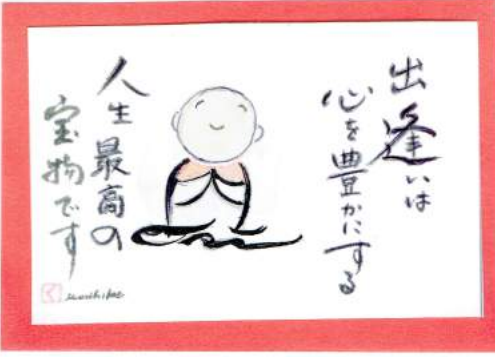 出逢いは
心を豊かにする
人生最高の
宝物です